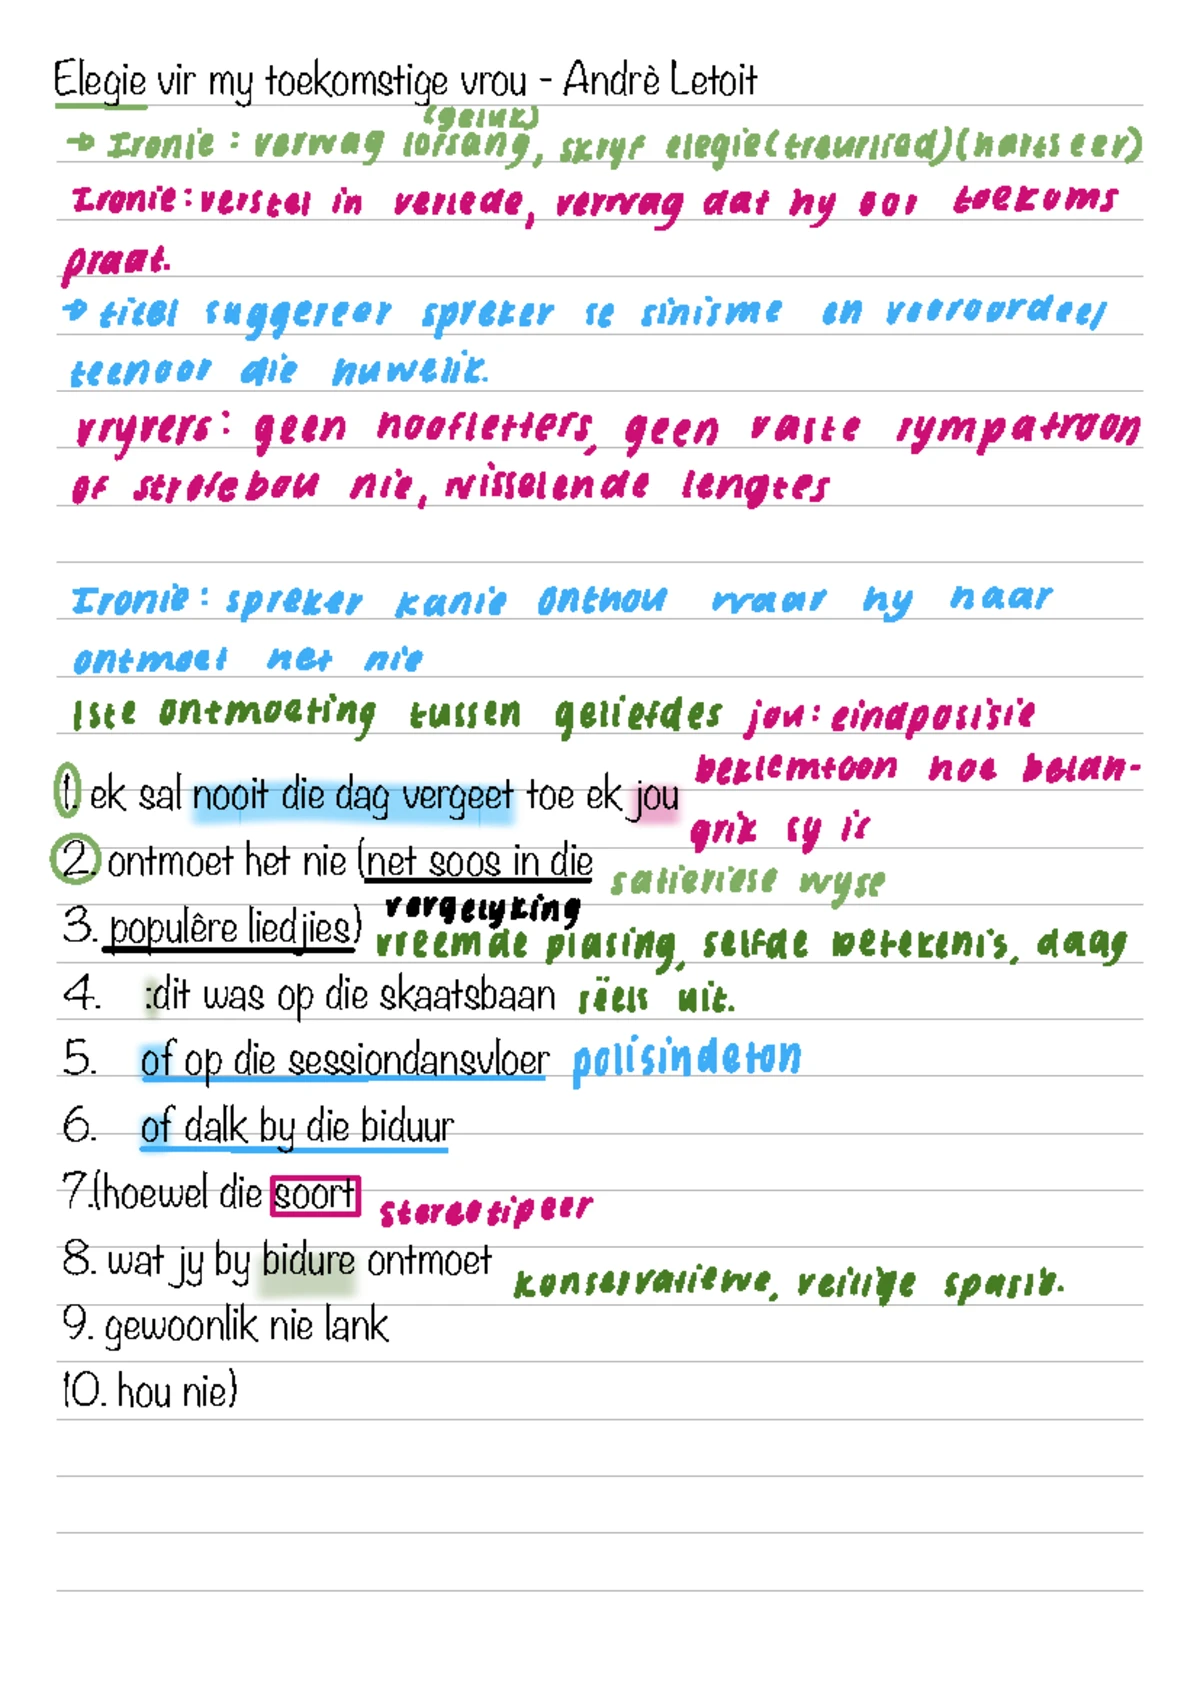 Elegie vir my toekomstige vrou - Andrè Letoit
(geluk)
→ Ironie: verwag lofsang, skryf elegie(treurlied)(hartseer)
Ironie: verstel in verlede, verwag dat hy oor toekoms
praat.
→ titel suggereer spreker se sinisme en vooroordeel
teenoor die huwelik.
vryvers: geen hoofletters, geen vaste rympatroon
of strofebou nie, wisselende lengtes
Ironie: spreker kanie onthou waar hy haar
ontmoet het nie
1ste ontmoeting tussen geliefdes jou: eindposisie
beklemtoon hoe belan-
1. ek sal nooit die dag vergeet toe ek jou
grik sy is
2. ontmoet het nie (net soos in die
satieriese wyse
3. populêre liedjies) vergelyking
vreemde plasing, selfde betekenis, daag
4. :dit was op die skaatsbaan rëels uit.
5. of op die sessiondansvloer polisindeton
6. of dalk by die biduur
7.(hoewel die soort stereotipeer
8. wat jy by bidure ontmoet konservatiewe, veilige spasie.
9. gewoonlik nie lank
10. hou nie)